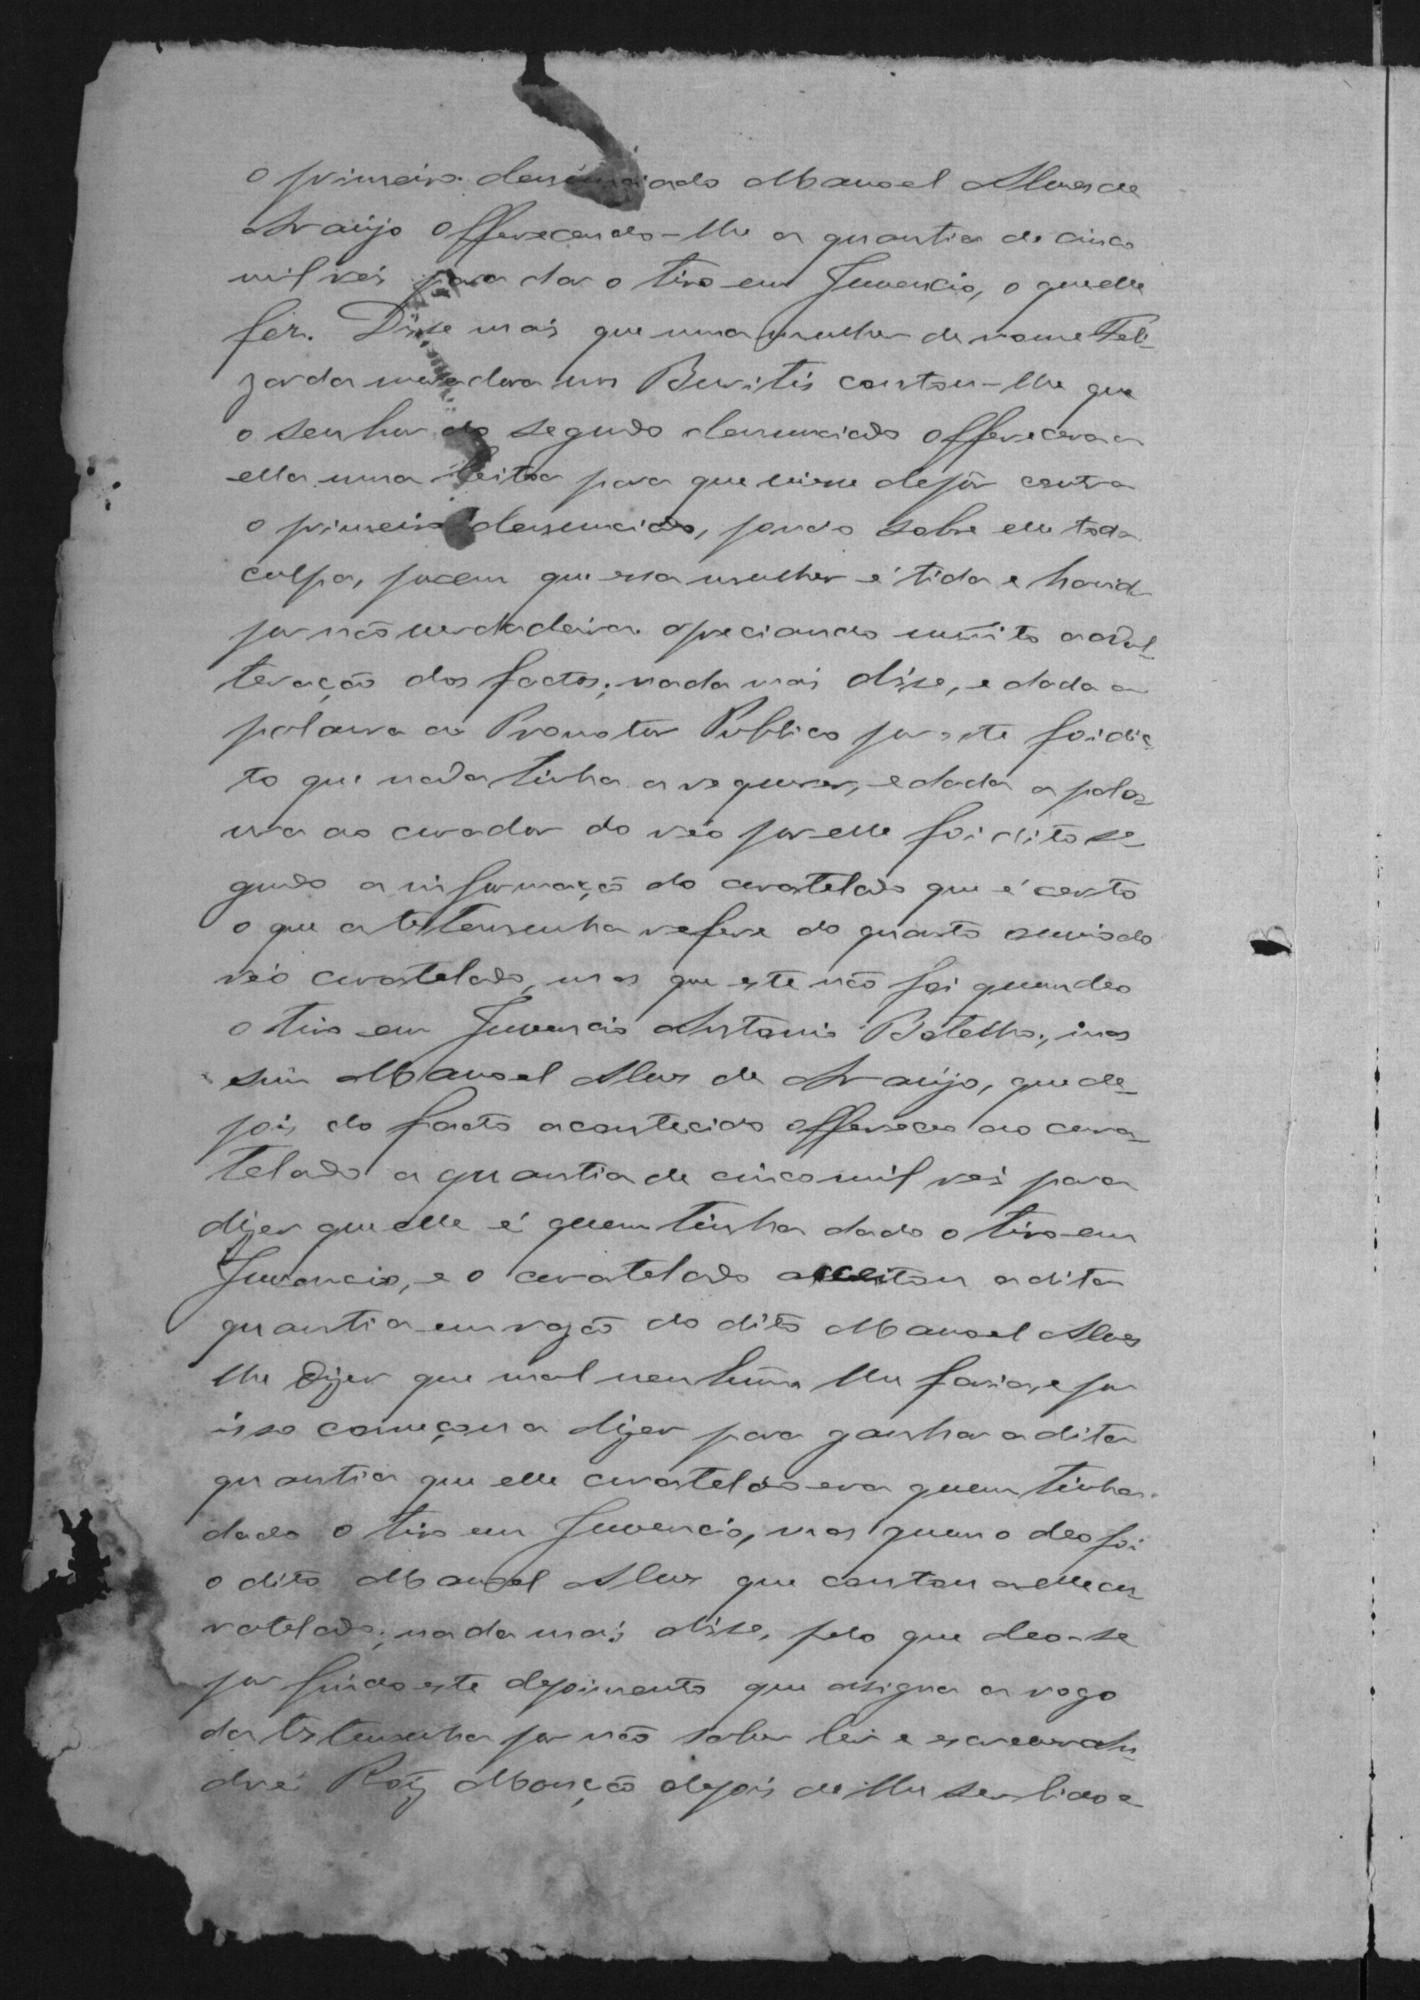 o primeiro denunciado Manoel Alves de
Araújo offerecendo-lhe a quantia de cinco
mil réis para dar o tiro em Juvencio, o que elle
fez. Disse mais que uma mulher de nome Feli-
zarda moradora nos Buritis contou-lhe que
o senhor do segundo denunciado offerecera a
ella uma leitoa para que viesse depôr contra
o primeiro denunciado, pondo sobre elle toda
culpa, porem que essa mulher é tida e havida
por não verdadeira apreciando muito a adul-
teração dos factos; nada mais disse, e dada a
palavra ao Promotor Publico por este foi dic
to que nada tinha a requerer, e dada a pala-
vra ao curador do réo por elle foi dito se
gundo a informação do curatelado que é certo
o que a testemunha refere do quanto ouvio do
réo curatelado, mas que este não foi quem deo
o tiro em Juvencio Antonio Botelho, mas
sim Manoel Alves de Araújo, que de-
pois do facto acontecido offereceo ao cura-
telado a quantia de cinco mil reis para
dizer que elle é quem tinha dado o tiro em
Juvencio, e o curatelado acceitou a dita
quantia em razão do dito Manoel Alves
lhe dizer que mal nenhum lhe faria, e por
isso começou a dizer para ganhar a dita
quantia que elle curatelado era quem tinha
dado o tiro em Juvencio, mas quem o deo foi
o dito Manoel Alves que contou a elle cu-
ratelado; nada mais disse, pelo que deo-se
por findo este depoimento que assigna a rogo
da testemunha por não saber ler e escrever An-
dré Roiz Monção depois de lhe ser lido e